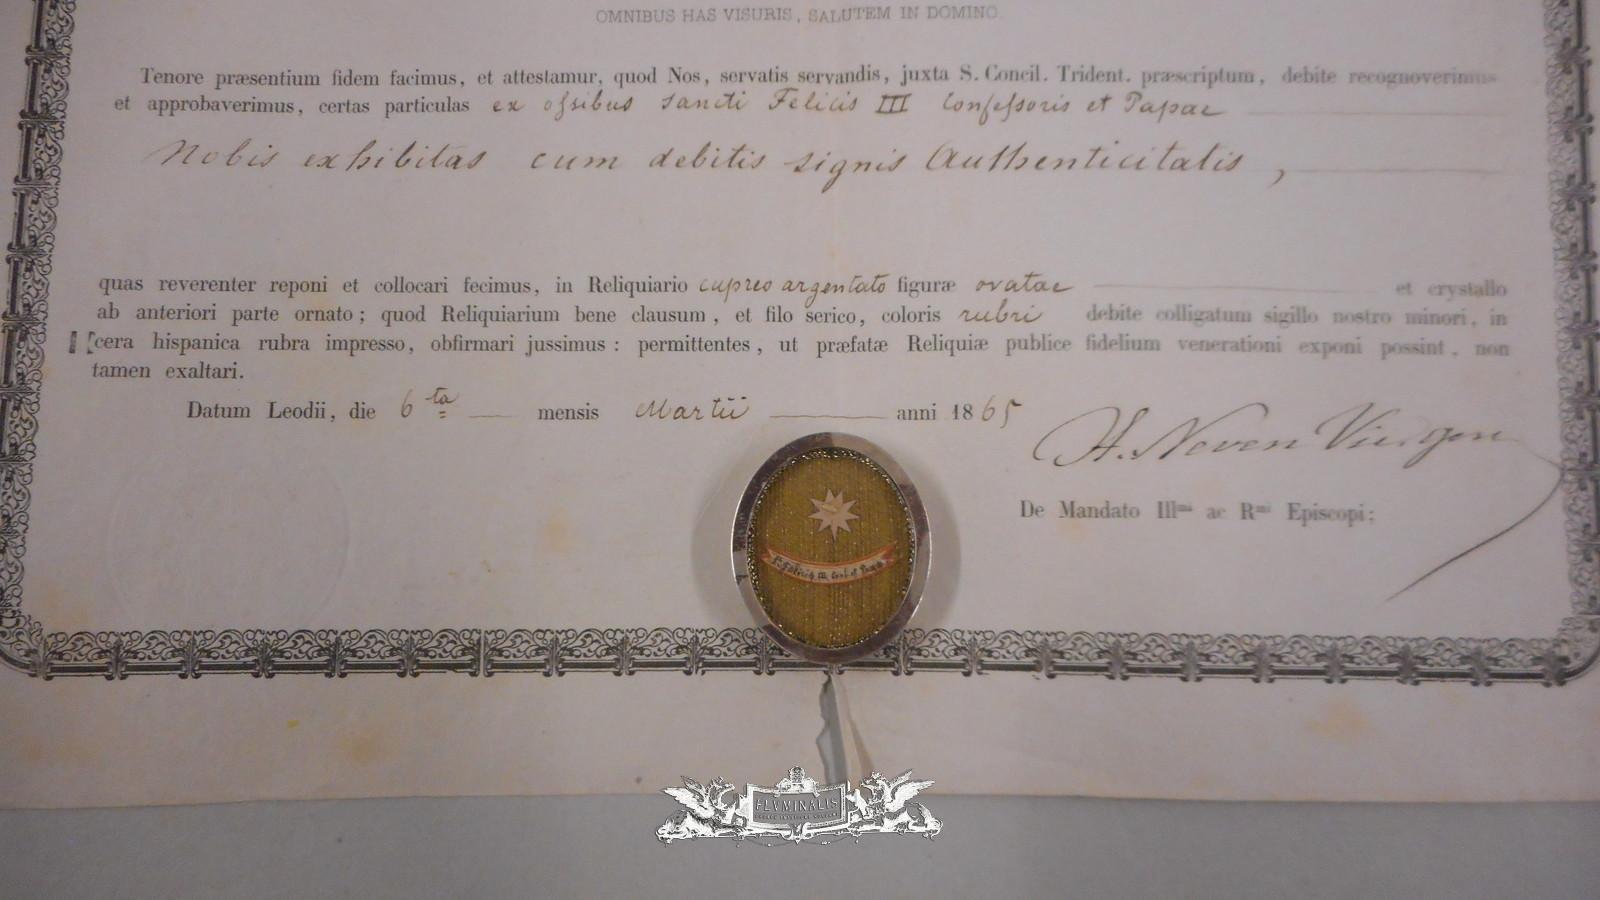 OMNIBUS HAS VISURIS, SALUTEM IN DOMINO.
Tenore præsentium fidem facimus, et attestamur, quod Nos, servatis servandis, juxta S. Concil. Trident. præscriptum, debite recognoverimus
et approbaverimus, certas particulas ex ossibus Sancti Felicis III Confessoris et Papae
Nobis exhibitas cum debitis signis Authenticitatis,
quas reverenter reponi et collocari fecimus, in Reliquiario cupreo argentato figuræ ovatae et crystallo
ab anteriori parte ornato; quod Reliquiarium bene clausum, et filo serico, coloris rubri debite colligatum sigillo nostro minori, in
cera hispanica rubra impresso, obfirmari jussimus: permittentes, ut præfatæ Reliquiæ publice fidelium venerationi exponi possint, non
tamen exaltari.
Datum Leodii, die 6ta mensis Martii anni 1865
H. Neven
De Mandato Illmi ac Rmi Episcopi:
S. Felicis III Conf. et Papae
FLVMINALIS